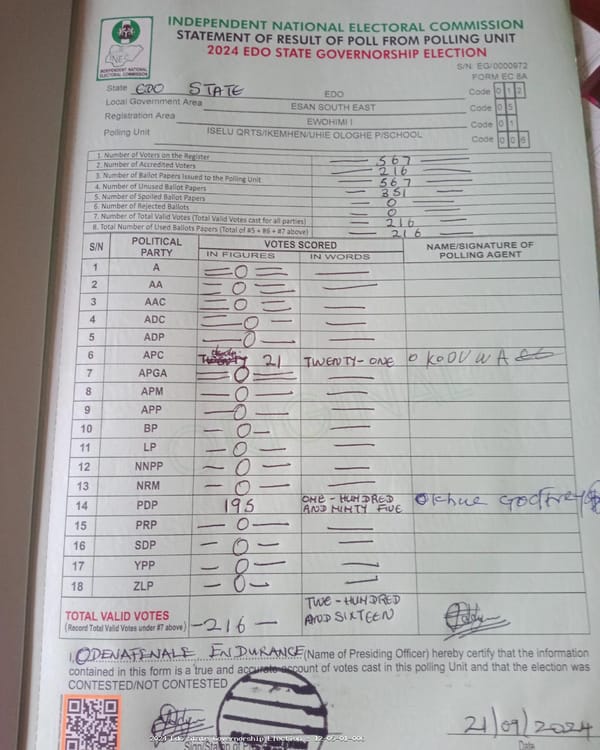 INDEPENDENT NATIONAL ELECTORAL COMMISSION
STATEMENT OF RESULT OF POLL FROM POLLING UNIT
2024 EDO STATE GOVERNORSHIP ELECTION
INDEPENDENT NATIONAL ELECTORAL COMMISSION
S/N: EG/0000972
FORM EC 8A
State EDO STATE EDO Code 0 1 2
Local Government Area ESAN SOUTH EAST Code 0 5
Registration Area EWOHIMI I Code 0 1
Polling Unit ISELU QRTS/IKEMHEN/UHIE OLOGHE P/SCHOOL Code 0 0 6
1. Number of Voters on the Register 567
2. Number of Accredited Voters 216
3. Number of Ballot Papers Issued to the Polling Unit 567
4. Number of Unused Ballot Papers 351
5. Number of Spoiled Ballot Papers 0
6. Number of Rejected Ballots 0
7. Number of Total Valid Votes (Total Valid Votes cast for all parties) 216
8. Total Number of Used Ballots Papers (Total of #5 + #6 + #7 above) 216
S/N POLITICAL PARTY VOTES SCORED NAME/SIGNATURE OF POLLING AGENT
IN FIGURES IN WORDS
1 A 0
2 AA 0
3 AAC 0
4 ADC 0
5 ADP 0
6 APC TWENTY 21 TWENTY-ONE OKODUWA
7 APGA 0
8 APM 0
9 APP 0
10 BP 0
11 LP 0
12 NNPP 0
13 NRM 0
14 PDP 195 ONE-HUNDRED AND NINTY FIVE Okhue Godfrey
15 PRP 0
16 SDP 0
17 YPP 0
18 ZLP 0
TOTAL VALID VOTES -216- TWO-HUNDRED AND SIXTEEN
(Record Total Valid Votes under #7 above)
I, ODENAFENALE ENDURANCE (Name of Presiding Officer) hereby certify that the information
contained in this form is a true and accurate account of votes cast in this polling Unit and that the election was
CONTESTED/NOT CONTESTED
21/09/2024
Date